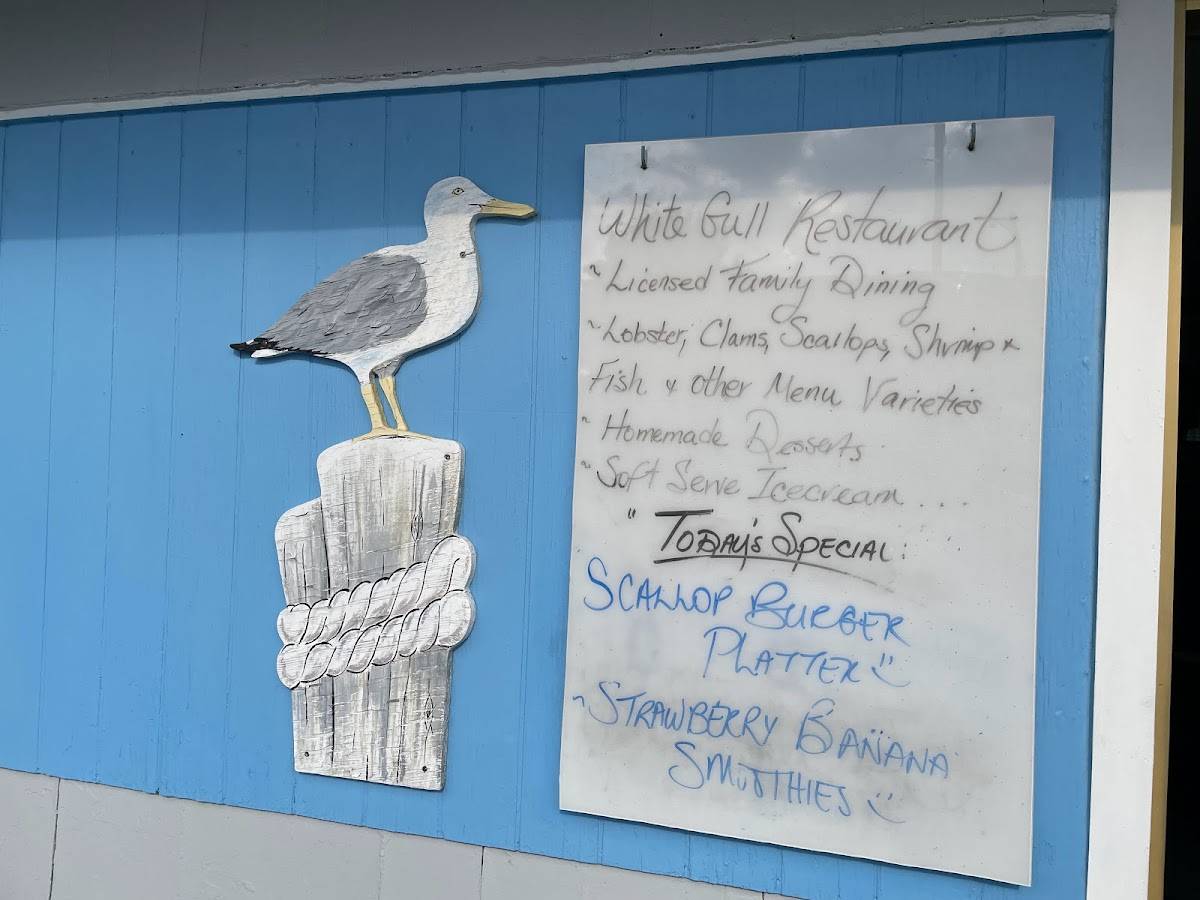 White Gull Restaurant
~ Licensed Family Dining
~ Lobster, Clams, Scallops, Shrimp &
Fish & other Menu Varieties
~ Homemade Desserts
~ Soft Serve Icecream ....
" Today's Special:
Scallop Burger
Platter :)
~ Strawberry Banana
Smoothies :)